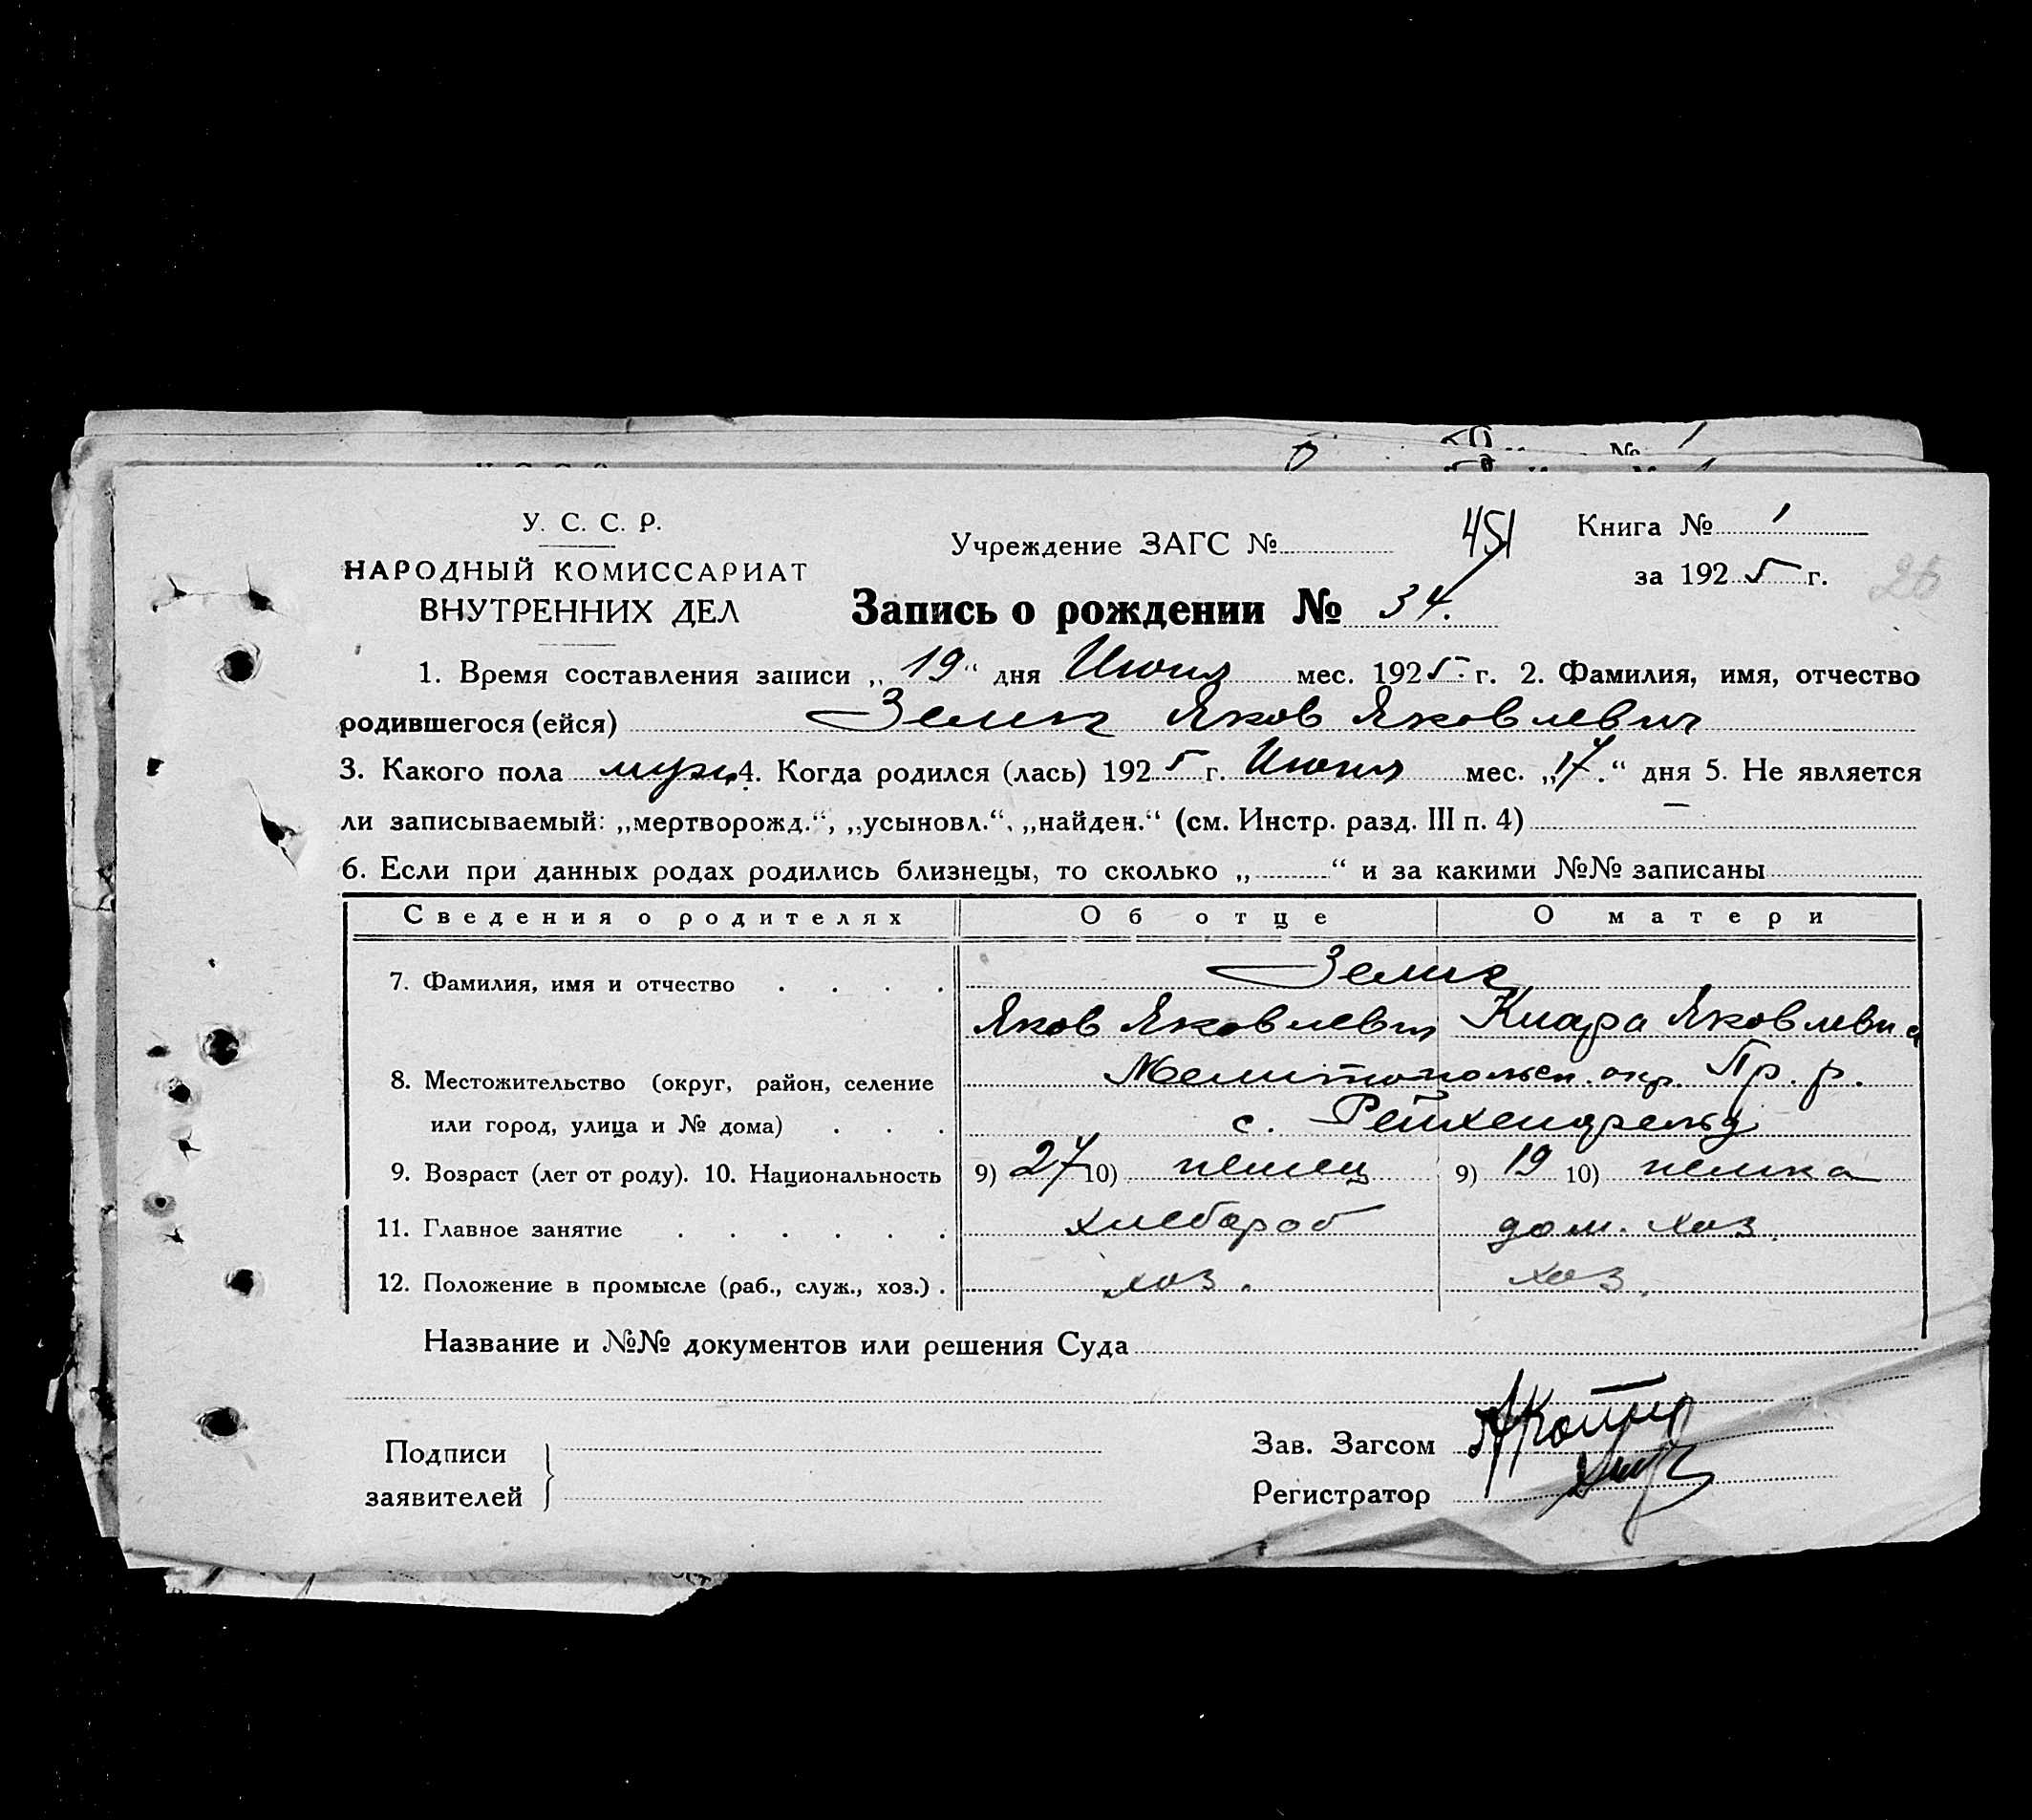 У. С. С. Р.
НАРОДНЫЙ КОМИССАРИАТ
ВНУТРЕННИХ ДЕЛ
Учреждение ЗАГС №
451
Книга № 1
за 1925 г.
26
Запись о рождении № 34.
1. Время составления записи „19“ дня Июня мес. 1925 г. 2. Фамилия, имя, отчество
родившегося (ейся) Яков Яковлевич
3. Какого пола муж. 4. Когда родился (лась) 1925 г. Июня мес. „17.“ дня 5. Не является
ли записываемый: „мертворожд.“, „усыновл.“, „найден.“ (см. Инстр. разд. III п. 4) —
6. Если при данных родах родились близнецы, то сколько „ “ и за какими №№ записаны
Сведения о родителях Об отце О матери
7. Фамилия, имя и отчество . . . .
Яков Яковлевич Клара Яковлевна
8. Местожительство (округ, район, селение Мелитопольск. окр. Пр. р.
или город, улица и № дома) . . . с. Рейхенфельд
9. Возраст (лет от роду). 10. Национальность 9) 27 10) немец 9) 19 10) немка
11. Главное занятие . . . . . . хлебороб дом. хоз.
12. Положение в промысле (раб., служ., хоз.) . хоз. хоз.
Название и №№ документов или решения Суда
Подписи
заявителей
Зав. Загсом
Регистратор